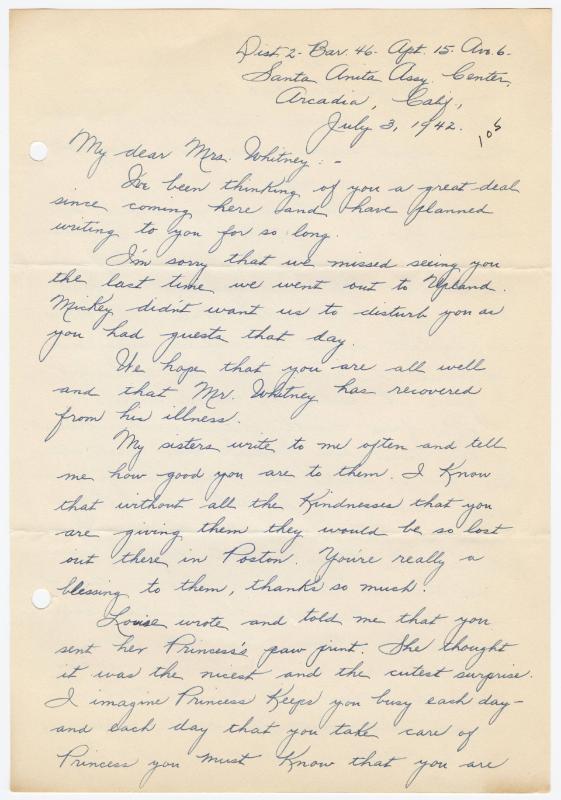 Dist 2- Bar. 46- Apt. 15- Ave. 6-
Santa Anita Assy. Center,
Arcadia, Calif.,
July 3, 1942.
106
My dear Mrs. Whitney: -
I've been thinking of you a great deal
since coming here and have planned
writing to you for so long.
I'm sorry that we missed seeing you
the last time we went out to Upland.
Mickey didn't want us to disturb you as
you had guests that day.
We hope that you are all well
and that Mr. Whitney has recovered
from his illness.
My sisters write to me often and tell
me how good you are to them. I know
that without all the kindnesses that you
are giving them they would be so lost
out there in Poston. You're really a
blessing to them, thanks so much.
Louise wrote and told me that you
sent her Princess's paw print. She thought
it was the nicest and the cutest surprise.
I imagine Princess keeps you busy each day-
and each day that you take care of
Princess you must know that you are